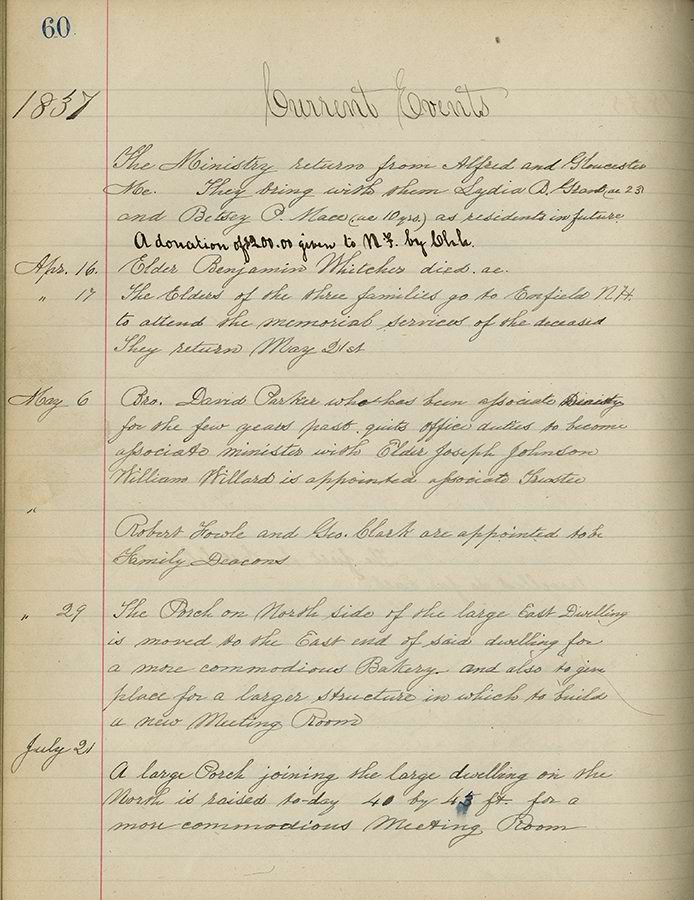 60
1837 Current Events
The Ministry return from Alfred and Gloucester
Me. They bring with them Lydia B. (ae 23)
and Betsey P. Mace (ae 10 yrs.) as residents in future.
A donation of $200.00 given to N.F. by Chh.
Apr. 16. Elder Benjamin Whitcher died. ae.
" 17 The Elders of the three families go to Enfield N.H.
to attend the memorial services of the deceased
They return May 21st
May 6 Bro. David Parker who has been associate
for the few years past quits office duties to become
associate minister with Elder Joseph Johnson
William Willard is appointed associate Trustee
"
Robert Fowle and Geo. Clark are appointed to be
Family Deacons
" 29 The Porch on North side of the large East Dwelling
is moved to the East end of said dwelling for
a more commodious Bakery and also to give
place for a larger structure in which to build
a new Meeting Room
July 21
A large Porch joining the large dwelling on the
North is raised to-day 40 by 45 ft. for a
more commodious Meeting Room